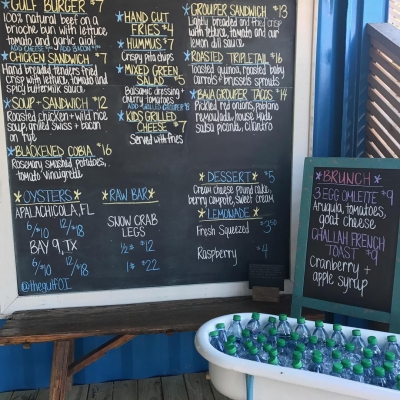 *GULF BURGER $7
100% natural beef on a
brioche bun with lettuce,
tomato and garlic aioli
ADD CHEESE ADD BACON
*CHICKEN SANDWICH $7
Hand breaded tenders fried
crisp with lettuce, tomato and
spicy buttermilk sauce.
*SOUP + SANDWICH $12
Roasted chicken + wild rice
soup, grilled swiss + bacon
on rye
*BLACKENED COBIA $16
Rosemary smashed potatoes,
tomato vinaigrette
*HAND CUT
FRIES $4
*HUMMUS $7
Crispy pita chips
*MIXED GREEN
SALAD $7
Balsamic dressing +
cherry tomatoes
ADD GRILLED GROUPER $8
*KIDS GRILLED
CHEESE $7
Served with fries
GROUPER SANDWICH $13
Lightly breaded and fried crisp
with lettuce, tomato and our
lemon dill sauce
*ROASTED TRIPLETAIL $16
Toasted quinoa, roasted baby
carrots + brussels sprouts
*BAJA GROUPER TACOS $14
Pickled red onions, poblano
remoulade, house made
salsa picante, cilantro
*OYSTERS*
APALACHICOLA, FL
6/$10 12/$18
BAY 9, TX
6/$10 12/$18
@thegulfOI
*RAW BAR*
SNOW CRAB
LEGS
½# $12
1# $22
*DESSERT* $5
Cream cheese pound cake,
berry compote, sweet cream
*LEMONADE*
Fresh Squeezed $3.50
Raspberry $4
*BRUNCH*
3 EGG OMLEITE $9
Arugula, tomatoes,
goat cheese
CHALLAH FRENCH
TOAST $9
Cranberry +
apple syrup